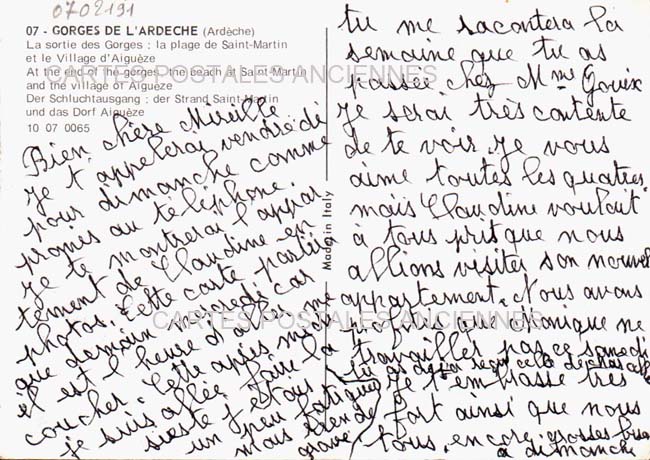 0702191
07 - GORGES DE L'ARDECHE (Ardèche)
La sortie des Gorges : la plage de Saint-Martin
et le Village d'Aiguèze
At the end of the gorges, the beach at Saint-Martin
and the village of Aiguèze
Der Schluchtausgang : der Strand Saint-Martin
und das Dorf Aiguèze
10 07 0065
CARTES POSTALES ANCIENNES
Bien chère Mireille
Je t'appelerai vendredi
pour dimanche comme
promis au téléphone.
Je te montrerai l'appar
tement de Claudine en
photos. Cette carte partira
que demain mercredi car
il est l'heure d'aller me
coucher. Cette après midi
je suis allée faire la
sieste j'étais
un peu fatiguée
mais rien de
grave
Made in Italy
tu me racontera la
semaine que tu as
passée chez Mme Gouix
Je serai très contente
de te voir. Je vous
aime toutes les quatres
mais Claudine voulait
à tous prix que nous
allions visiter son nouvel
appartement. Nous avons
profité que Monique ne
travailles pas ce samedi
tu as du recu celle de
Je t'embrasse très
fort ainsi que nous
tous, encore grosses bises
à dimanche
CARTES POSTALES ANCIENNES